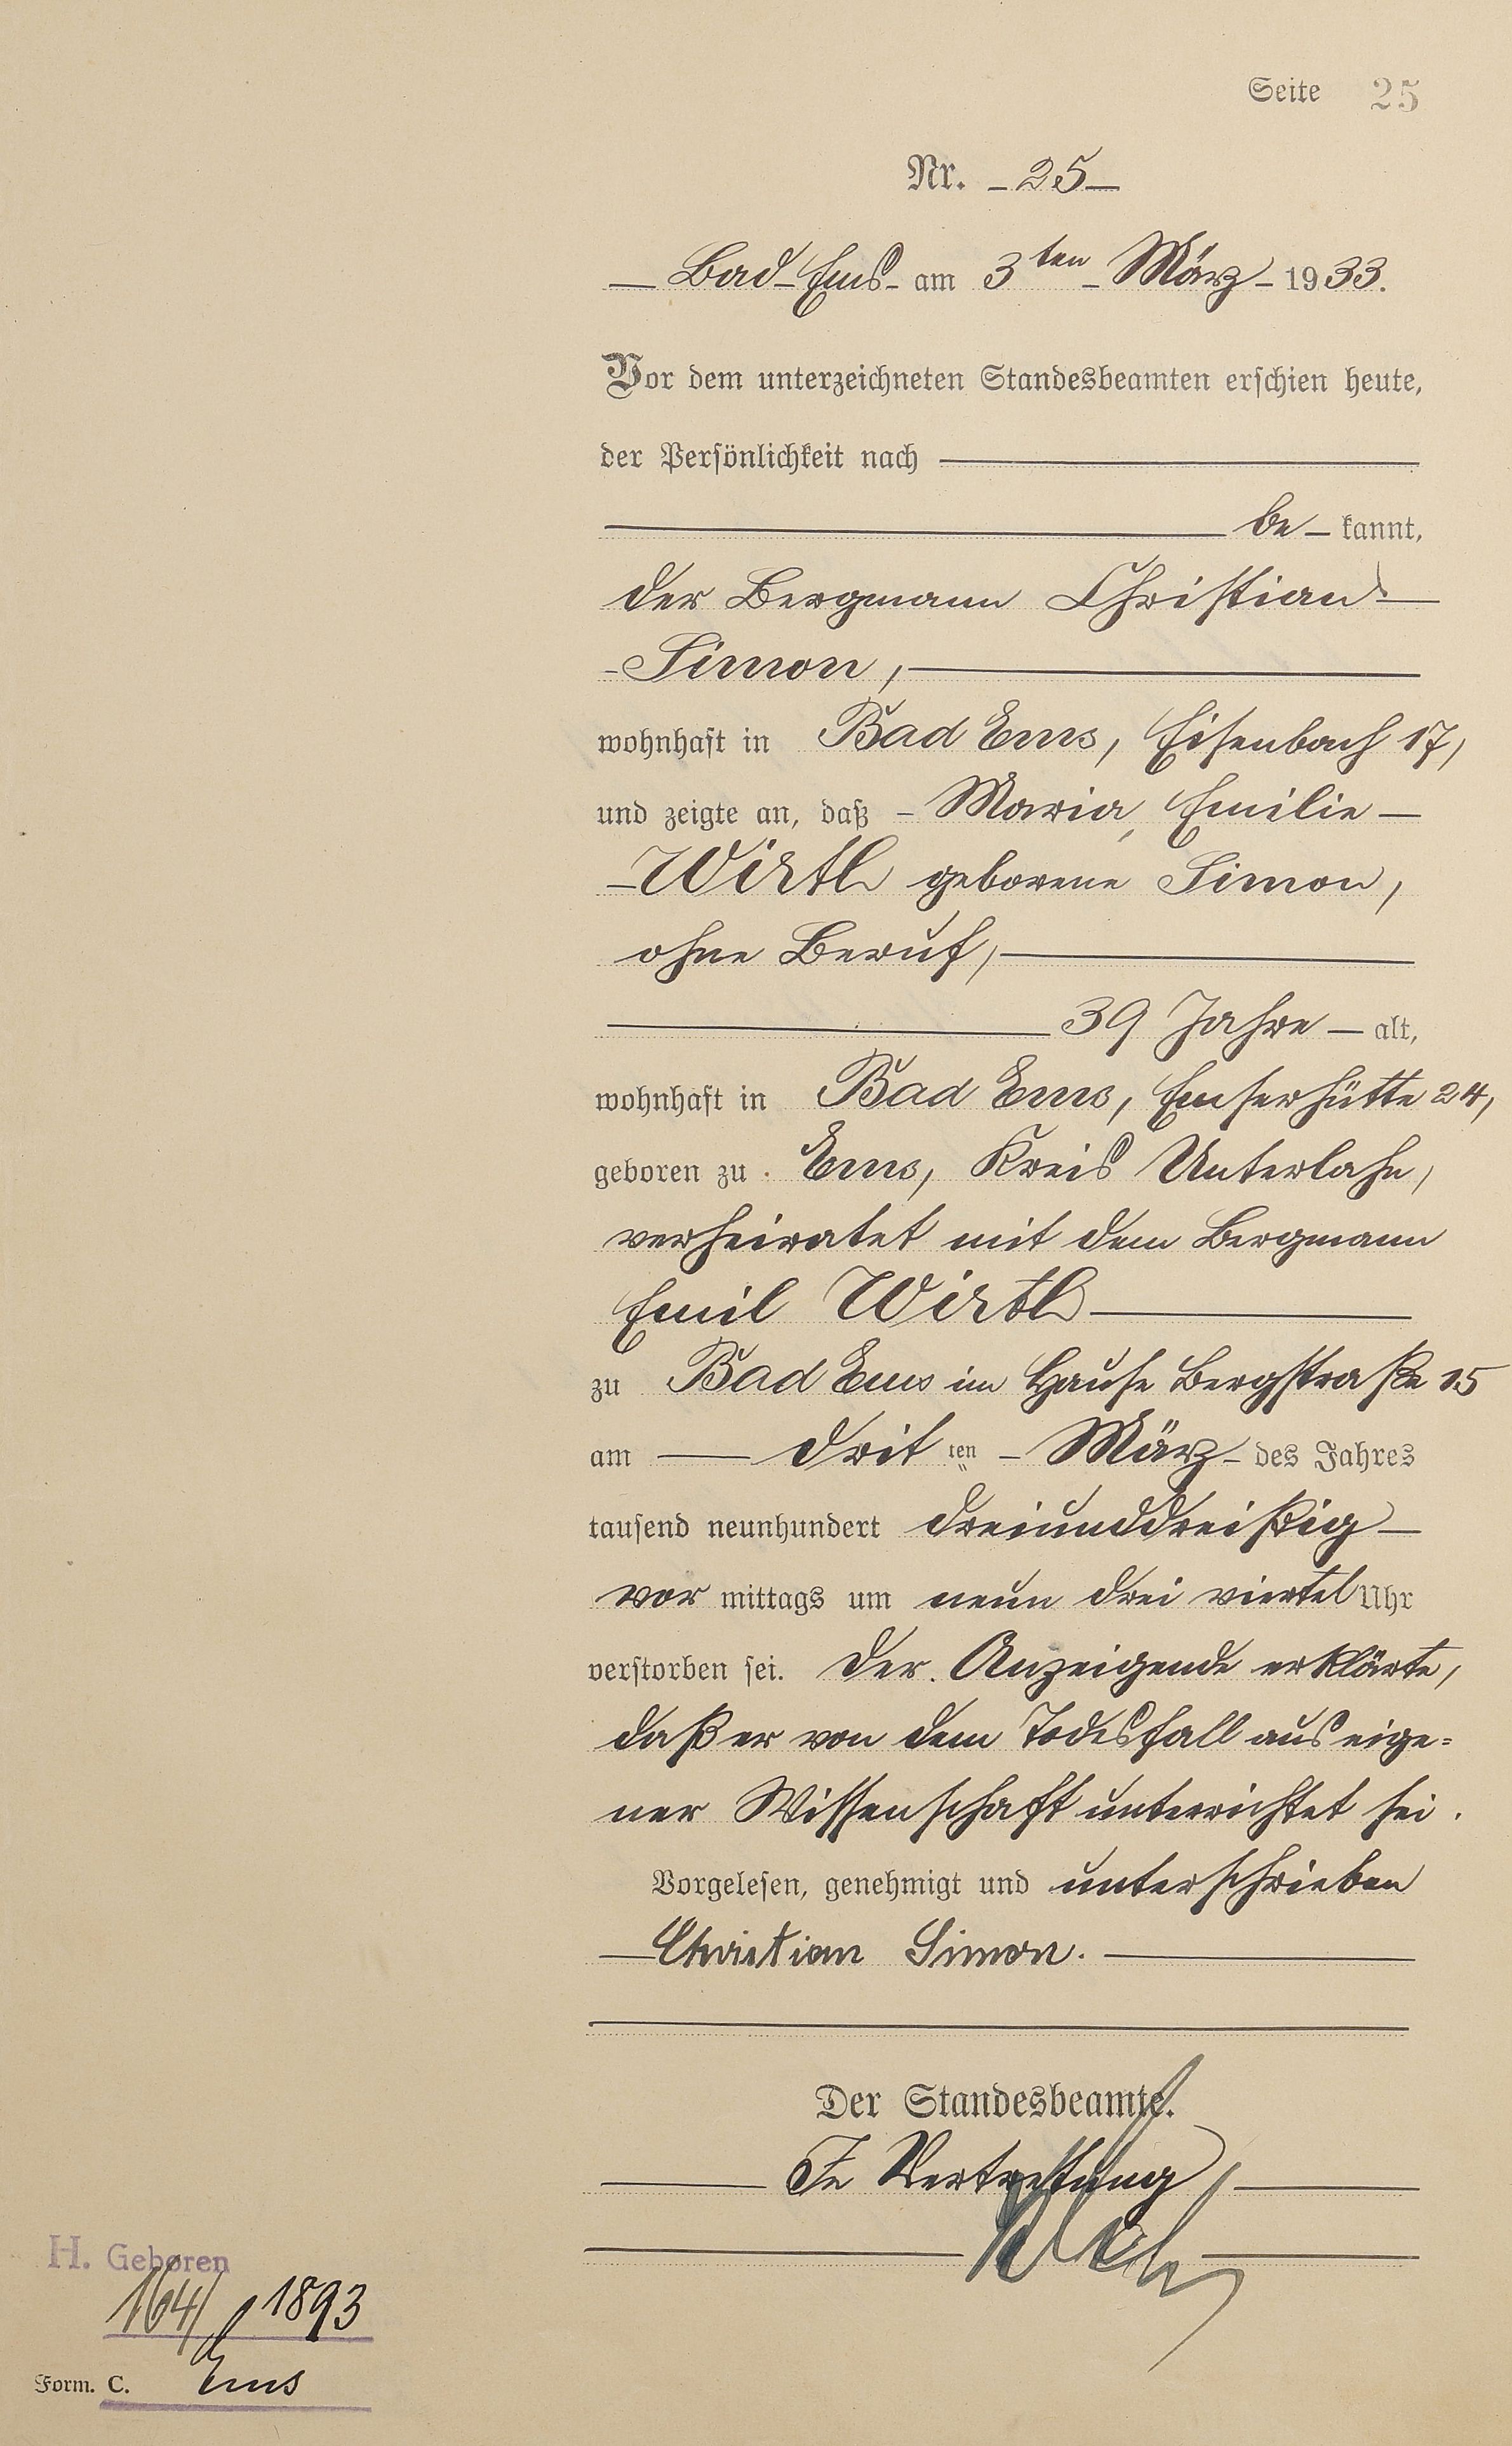 Seite 25
Nr. – 25 –
Bad-Ems- am 3ten März 1933.
Vor dem unterzeichneten Standesbeamten erschien heute,
der Persönlichkeit nach
be – kannt,
der Bergmann Christian
Simon,
wohnhaft in Bad Ems, Eisenbach 17,
und zeigte an, daß – Maria, Emilie –
Wirtl geborene Simon,
ohne Beruf,
39 Jahre – alt,
wohnhaft in Bad Ems, Emserhütte 24,
geboren zu Ems, Kreis Unterlahn,
verheiratet mit dem Bergmann
Emil Wirtl
zu Bad Ems im Hause Bergstraße 15
am drit ten – März – des Jahres
tausend neunhundert dreiunddreißig –
vor mittags um neun drei viertel Uhr
verstorben sei. Der Anzeigende erklärte,
daß er von dem Todesfall aus eige=
ner Wissenschaft unterrichtet sei.
Vorgelesen, genehmigt und unterschrieben
Christian Simon.
Der Standesbeamte.
In Vertretung
H. Geboren
164/1893
Form. C. Ems